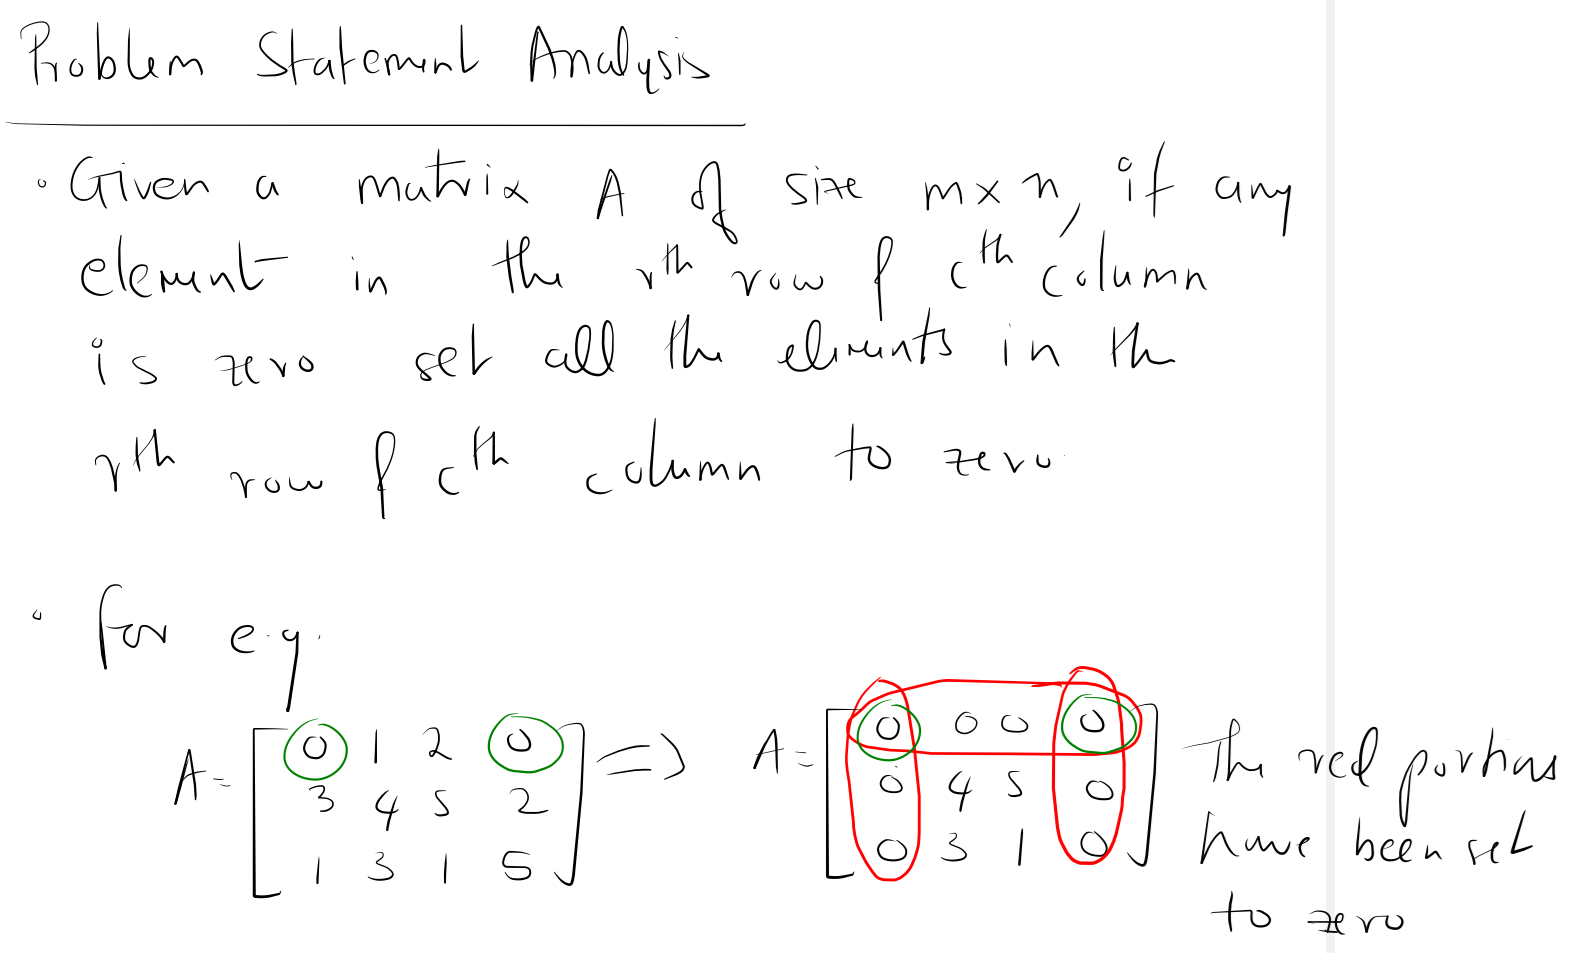 Problem Statement Analysis
• Given a matrix A of size m x n, if any
element in the rth row & cth column
is zero set all the elements in the
rth row & cth column to zero.
• For e.g.
A = [ 0 1 2 0 ] => A = [ 0 0 0 0 ] The red portions
3 4 5 2 0 4 5 0 have been set
1 3 1 5 0 3 1 0 to zero